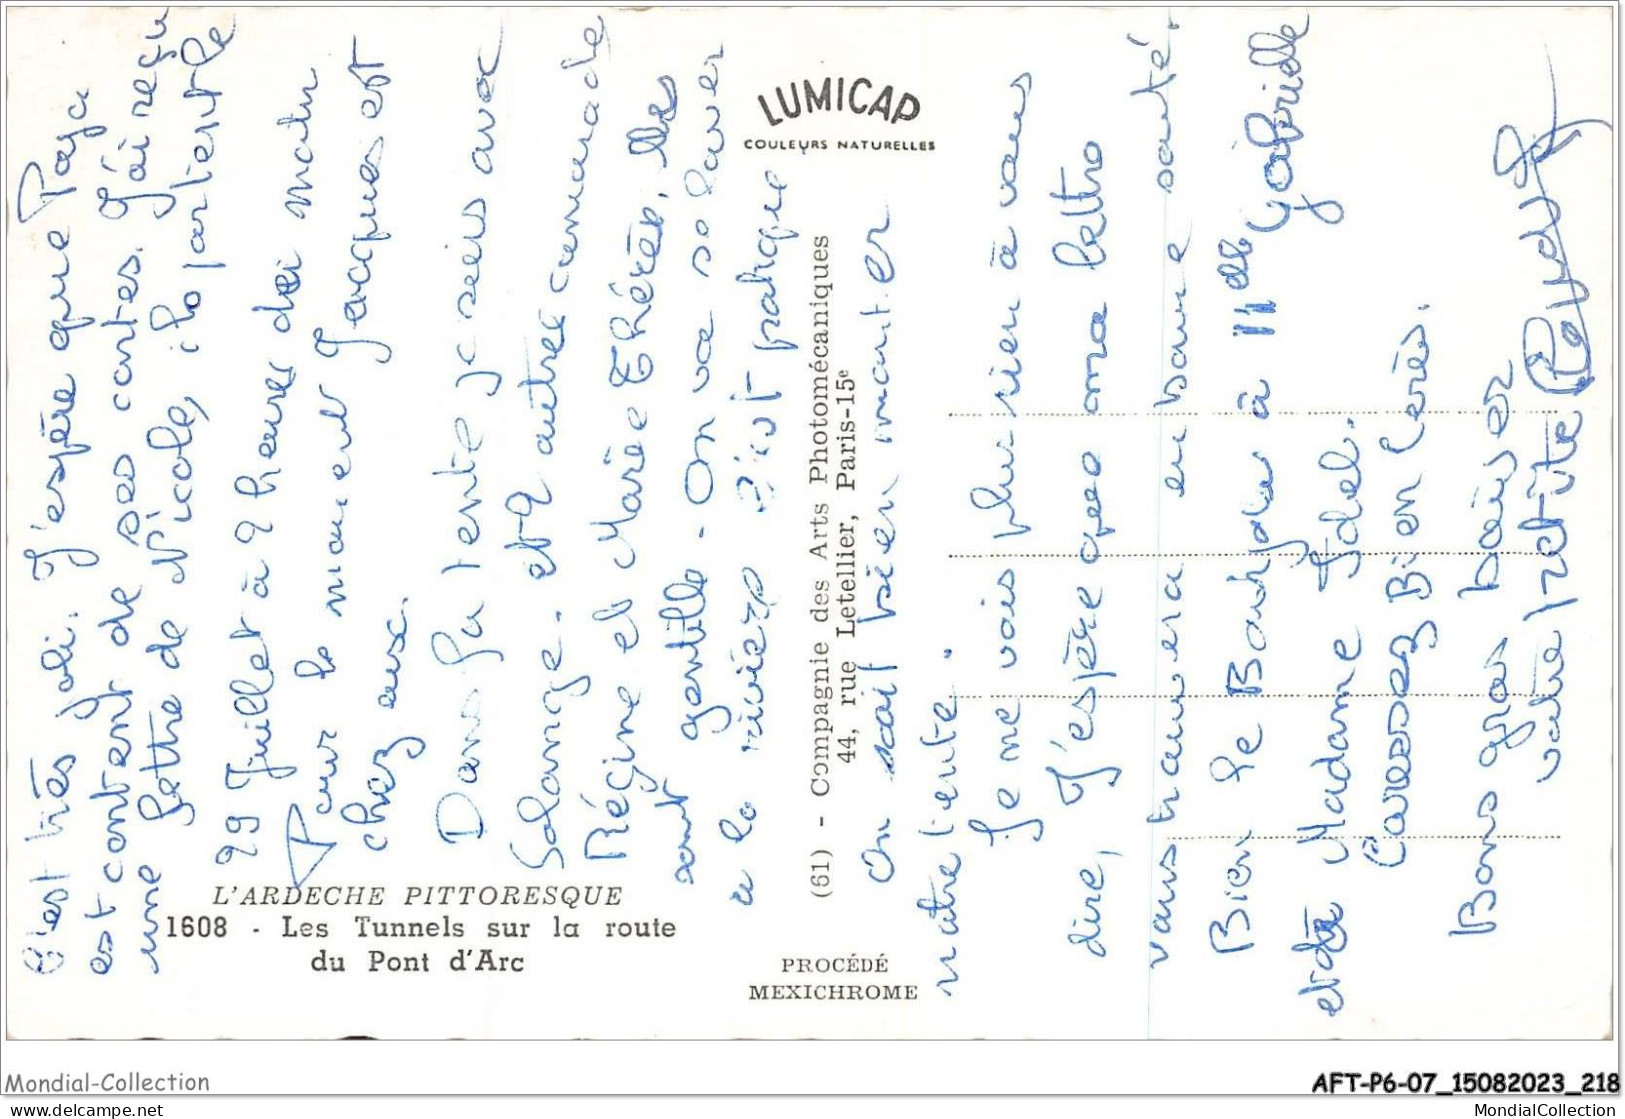 C'est très joli. J'espère que Papa
est content de ses cartes. J'ai reçu
une lettre de Nicole, ilo partent le
29 Juillet à 2 heures du matin
Pour le moment Jacques est
chez eux.
Dans la tente je suis avec
Solange. et 2 autres camarade
Régine et Marie Thérèse, Elles
sont gentille - On va se laver
a la rivière c'est pratique
on sait bien monter
notre tente.
Je me vois plus rien à vous
dire, J'espère que ma lettre
vous trouvera en bonne santé.
Bien le Bonjour à Melle Gabrielle
et à Madame Fadel.
Caressez Bien Cerès.
Bons gros baiser
votre petite
LUMICAP
COULEURS NATURELLES
(61) - Compagnie des Arts Photomécaniques
44, rue Letellier, Paris-15e
L'ARDECHE PITTORESQUE
1608 - Les Tunnels sur la route
du Pont d'Arc
PROCÉDÉ
MEXICHROME
Mondial-Collection
AFT-P6-07_15082023_218
delcampe.net
MondialCollection